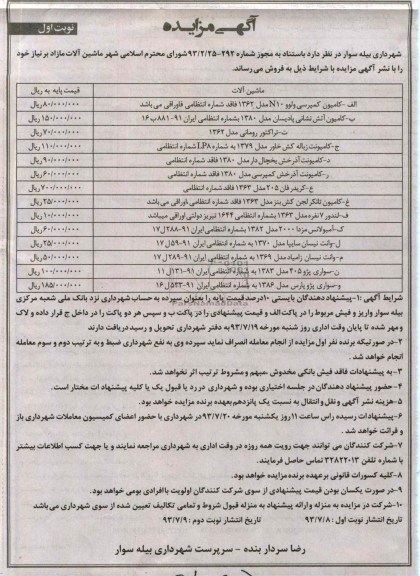 آگهی مزایده
نوبت اول
شهرداری بیله سوار در نظر دارد باستناد به مجوز شماره ۲۹۴-۹۳/۲/۲۵ شورای محترم اسلامی شهر ماشین آلات مازاد بر نیاز خود
را با نشر آگهی مزایده با شرایط ذیل به فروش می‌رساند.
ماشین آلات قیمت پایه به ریال
الف -کامیون کمپرسی ولوو N۱۰ مدل ۱۳۶۲ فاقد شماره انتظامی فاوراقی می باشد ۸۰/۰۰۰/۰۰۰ریال
ب-کامیون آتش نشانی پادیسان مدل ۱۳۸۰ بشماره انتظامی ایران ۹۱-۸۸۱ب۱۶ ۱۵۰/۰۰۰/۰۰۰ریال
ت-تراکتور رومانی مدل ۱۳۶۲ ۷۰/۰۰۰/۰۰۰ریال
ج-کامیونت زباله کش خاور مدل ۱۳۷۹ به شماره LP۸ شماره انتظامی ۱۱۰/۰۰۰/۰۰۰ریال
د-کامیونت آذرخش یخچال دار مدل ۱۳۸۰ فاقد شماره انتظامی ۹۰/۰۰۰/۰۰۰ریال
ر-کامیونت آذرخش کمپرسی مدل ۱۳۸۰ فاقد شماره انتظامی ۶۰/۰۰۰/۰۰۰ریال
ع-گریدر فان ۲۰۵ مدل ۱۳۶۳ فاقد شماره انتظامی ۷۰۰/۰۰۰/۰۰۰ریال
غ-کامیون تانکر لجن کش بنز مدل ۱۳۶۳ فاقد شماره انتظامی ،اوراقی می باشد ۲۵/۰۰۰/۰۰۰ریال
ف-لندور ۷ نفره مدل ۱۳۶۳ بشماره انتظامی ۱۶۴۴ تبریز دولتی اوراقی میباشد ۱۰/۰۰۰/۰۰۰ریال
ک-آمبولانس مزدا ۲۰۰۰ مدل ۱۳۸۲ بشماره انتظامی ایران ۹۱-۲۸۸ل۱۷ ۶۰/۰۰۰/۰۰۰ریال
ل-وانت نیسان سایپا مدل ۱۳۷۰ به شماره انتظامی ایران ۹۱-۵۹ل۱۷ ۲۵/۰۰۰/۰۰۰ریال
م-وانت نیسان زامیاد مدل ۱۳۶۹ به شماره انتظامی ایران ۹۱-۲۸۹ل۱۷ ۵۰/۰۰۰/۰۰۰ریال
ن-سواری پژو ۴۰۵ مدل ۱۳۸۳ به شماره انتظامی ایران ۹۱-۱۳۱ل۱۱ ۱۰۰/۰۰۰/۰۰۰ریال
و-سواری پژو پارس مدل ۱۳۸۶ به شماره انتظامی ایران ۹۱-۵۳۳ل۱۶ ۱۸۵/۰۰۰/۰۰۰ریال
شرایط آگهی :۱-پیشنهاددهندگان بایستی ۱۰درصد قیمت پایه را بعنوان سپرده به حساب شهرداری نزد بانک ملی شعبه مرکزی
بیله سوار واریز و فیش مربوط را در پاکت الف و قیمت پیشنهادی را در پاکت ب و سپس هر دو پاکت را در داخل ج قرار داده و لاک
و مهر شده تا پایان وقت اداری روز شنبه مورخه ۹۳/۷/۱۹ به دفتر شهرداری تحویل و رسید دریافت دارند.
۲-در صورتیکه برنده نفر اول مزایده از انجام معامله انصراف نماید سپرده وی به نفع شهرداری ضبط و به ترتیب دوم و سوم معامله
انجام خواهد شد.
۳-به پیشنهادات فاقد فیش بانکی مخدوش ،مبهم و مشروط ترتیب اثر نخواهد شد.
۴-حضور پیشنهاد دهندگان در جلسه اختیاری بوده و شهرداری در رد یا قبول یک یا کلیه پیشنهادات مختار است.
۵-هزینه نشر آگهی و نقل و انتقال به نسبت یک پانزدهم بعهده برنده مزایده خواهد بود.
۶-پیشنهادات رسیده راس ساعت ۱۱ روز یکشنبه مورخه ۹۳/۷/۲۰ در شهرداری با حضور اعضای کمیسیون معاملات شهرداری باز
و قرائت خواهد شد.
۷-شرکت کنندگان می توانند جهت رویت همه روزه در وقت اداری به شهرداری مراجعه نمایند و یا جهت کسب اطلاعات بیشتر
با شماره تلفن ۳۲۸۲۲۰۱۳ تماس حاصل فرمایند.
۸-کلیه کسورات قانونی برعهده برنده مزایده خواهد بود.
۹-در صورت یکسان بودن قیمت پیشنهادی از سوی شرکت کنندگان اولویت باافرادی بومی خواهد بود.
۱۰-شرکت در مزایده به منزله و ارائه پیشنهاد به منزله قبول شروط و تمامی تکالیف تعیین شده از سوی شهرداری می باشد
تاریخ انتشار نوبت اول : ۹۳/۷/۸ تاریخ انتشار نوبت دوم : ۹۳/۷/۹
رضا سردار بنده - سرپرست شهرداری بیله سوار